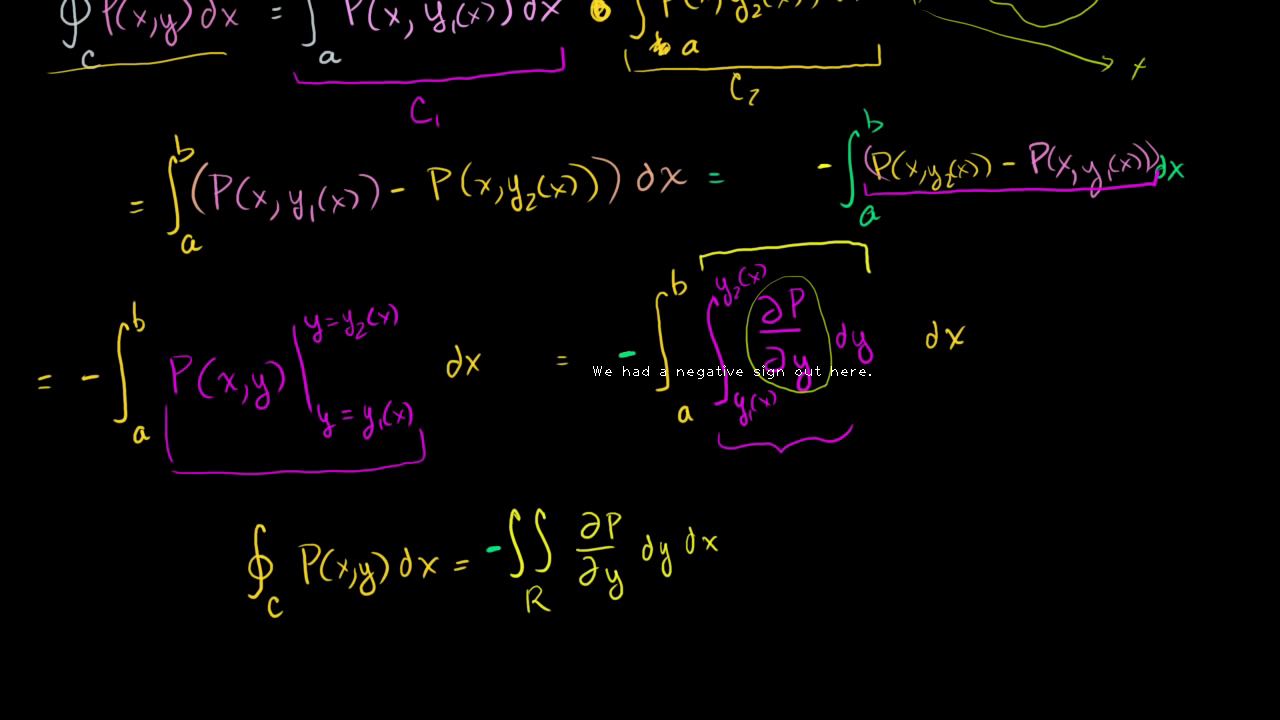 ∮_C P(x,y) dx = ∫_a P(x, y₁(x)) dx ∫_a
x
C₁ C₂
= ∫_a^b (P(x, y₁(x)) - P(x,y₂(x))) dx = - ∫_a^b (P(x,y₂(x)) - P(x,y₁(x))) dx
= - ∫_a^b P(x,y) |_{y = y₁(x)}^{y = y₂(x)} dx = - ∫_a^b ∫_{y₁(x)}^{y₂(x)} ∂P/∂y dy dx
We had a negative sign out here.
∮_C P(x,y) dx = - ∬_R ∂P/∂y dy dx